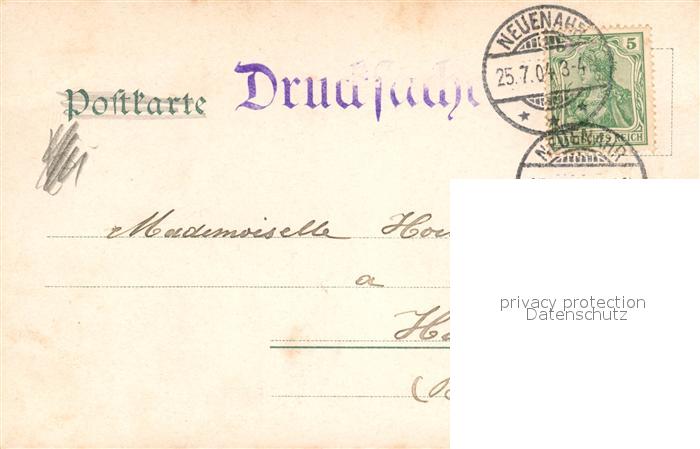 Postkarte Drucksache
NEUENAHR
25.7.04 3-4
5
REICH
NEUENAHR
Mademoiselle
a
privacy protection
Datenschutz